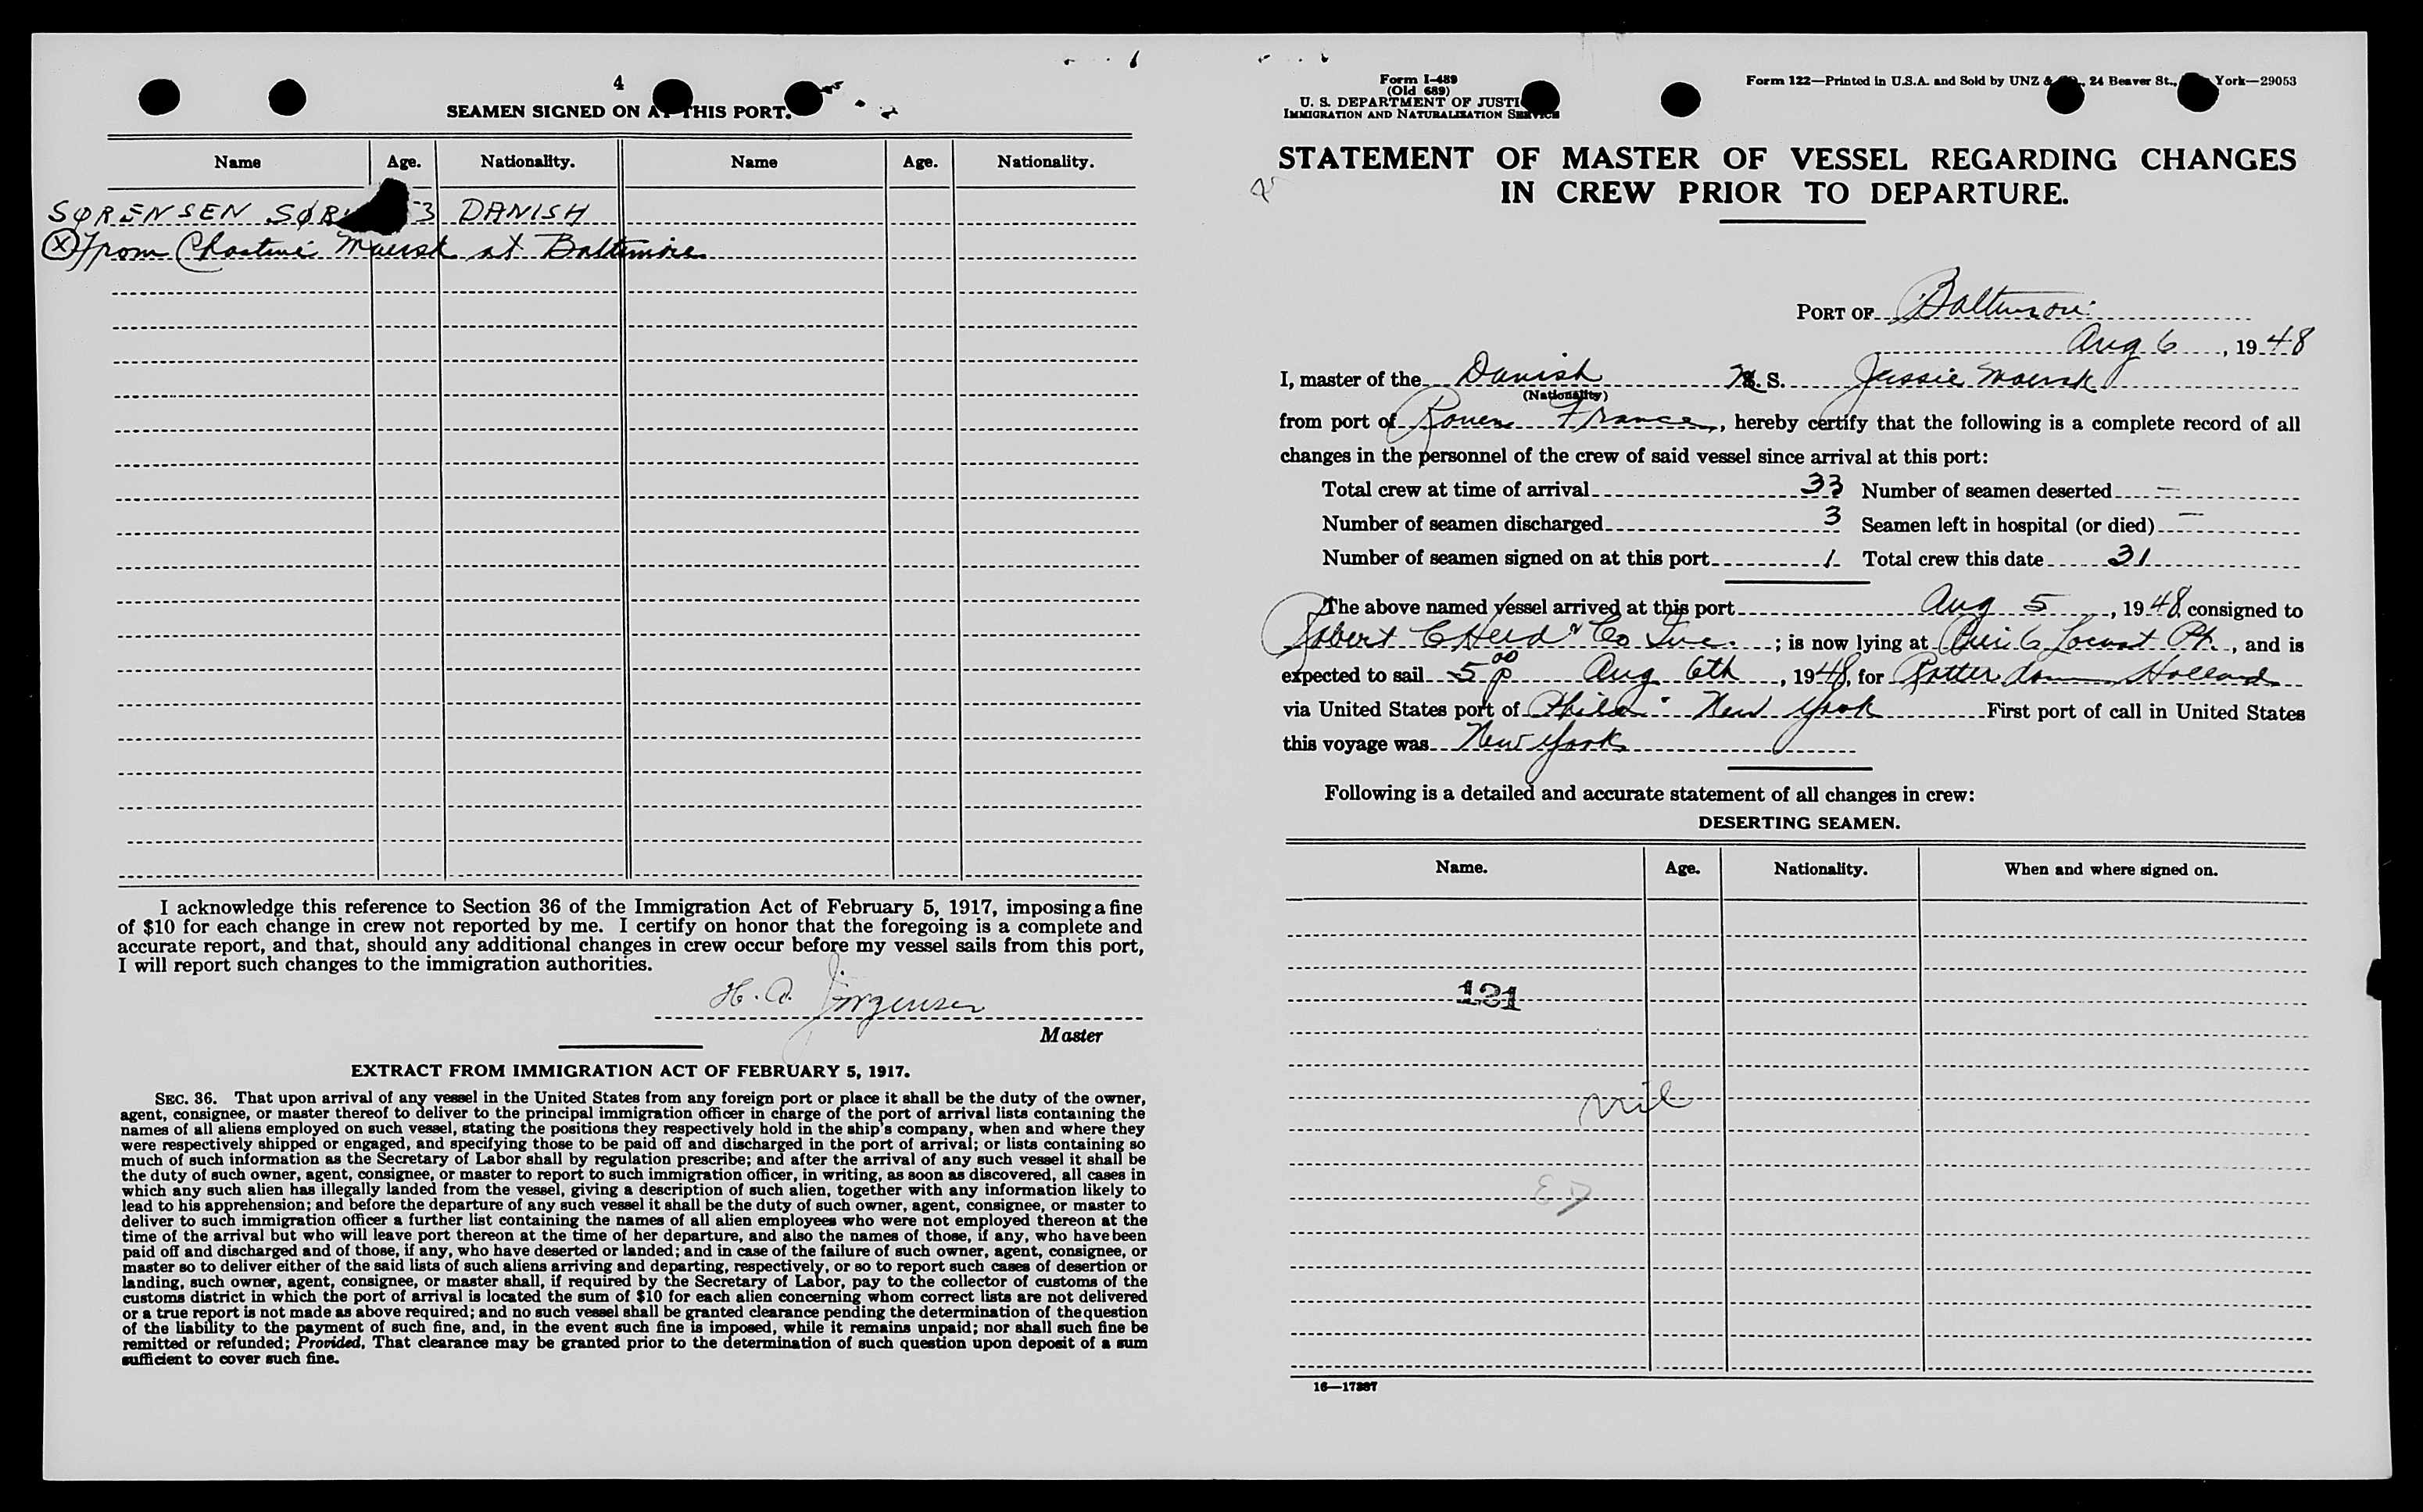 4
SEAMEN SIGNED ON AT THIS PORT.
Name Age. Nationality. Name Age. Nationality.
SØRENSEN SØR 3 DANISH
(X) From Chastine Maersk at Baltimore
I acknowledge this reference to Section 36 of the Immigration Act of February 5, 1917, imposing a fine
of $10 for each change in crew not reported by me. I certify on honor that the foregoing is a complete and
accurate report, and that, should any additional changes in crew occur before my vessel sails from this port,
I will report such changes to the immigration authorities.
Jörgensen
Master
EXTRACT FROM IMMIGRATION ACT OF FEBRUARY 5, 1917.
SEC. 36. That upon arrival of any vessel in the United States from any foreign port or place it shall be the duty of the owner,
agent, consignee, or master thereof to deliver to the principal immigration officer in charge of the port of arrival lists containing the
names of all aliens employed on such vessel, stating the positions they respectively hold in the ship's company, when and where they
were respectively shipped or engaged, and specifying those to be paid off and discharged in the port of arrival; or lists containing so
much of such information as the Secretary of Labor shall by regulation prescribe; and after the arrival of any such vessel it shall be
the duty of such owner, agent, consignee, or master to report to such immigration officer, in writing, as soon as discovered, all cases in
which any such alien has illegally landed from the vessel, giving a description of such alien, together with any information likely to
lead to his apprehension; and before the departure of any such vessel it shall be the duty of such owner, agent, consignee, or master to
deliver to such immigration officer a further list containing the names of all alien employees who were not employed thereon at the
time of the arrival but who will leave port thereon at the time of her departure, and also the names of those, if any, who have been
paid off and discharged and of those, if any, who have deserted or landed; and in case of the failure of such owner, agent, consignee, or
master so to deliver either of the said lists of such aliens arriving and departing, respectively, or so to report such cases of desertion or
landing, such owner, agent, consignee, or master shall, if required by the Secretary of Labor, pay to the collector of customs of the
customs district in which the port of arrival is located the sum of $10 for each alien concerning whom correct lists are not delivered
or a true report is not made as above required; and no such vessel shall be granted clearance pending the determination of the question
of the liability to the payment of such fine, and, in the event such fine is imposed, while it remains unpaid; nor shall such fine be
remitted or refunded; Provided, That clearance may be granted prior to the determination of such question upon deposit of a sum
sufficient to cover such fine.
Form I-489
(Old 689)
U. S. DEPARTMENT OF JUSTI
IMMIGRATION AND NATURALIZATION SERVICE
Form 122—Printed in U.S.A. and Sold by UNZ & , 24 Beaver St., York—29053
STATEMENT OF MASTER OF VESSEL REGARDING CHANGES
IN CREW PRIOR TO DEPARTURE.
PORT OF Baltimore
Aug 6, 1948
I, master of the Danish M. S. Jessie Maersk
(Nationality)
from port of Rouen France, hereby certify that the following is a complete record of all
changes in the personnel of the crew of said vessel since arrival at this port:
Total crew at time of arrival 33 Number of seamen deserted —
Number of seamen discharged 3 Seamen left in hospital (or died) —
Number of seamen signed on at this port 1 Total crew this date 31
The above named vessel arrived at this port Aug 5, 1948, consigned to
Robert C Herd & Co Inc. ; is now lying at Pier 6 Locust Pt., and is
expected to sail 5 00 p Aug 6th, 1948, for Rotterdam Holland
via United States port of Phila - New York First port of call in United States
this voyage was New York
Following is a detailed and accurate statement of all changes in crew:
DESERTING SEAMEN.
Name. Age. Nationality. When and where signed on.
131
nil
16—17387